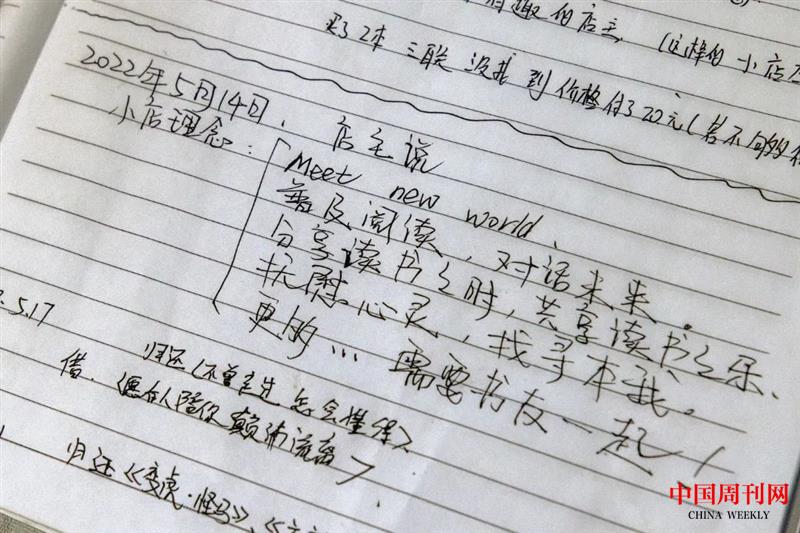 有趣的店主,(这样的小店
买了2本三联 没找到价格付了20元(若不够的
2022年5月14日, 店主说
小店理念:
Meet new world、
普及阅读,对话未来。
分享读书之时,共享读书之乐、
抚慰心灵,找寻本我。
更的… 需要书友一起!
.5.17
归还《不曾走过 怎会懂得》
借.《愿有人陪你颠沛流离》
归还《变虎·怪马》、
中国周刊网
CHINA WEEKLY